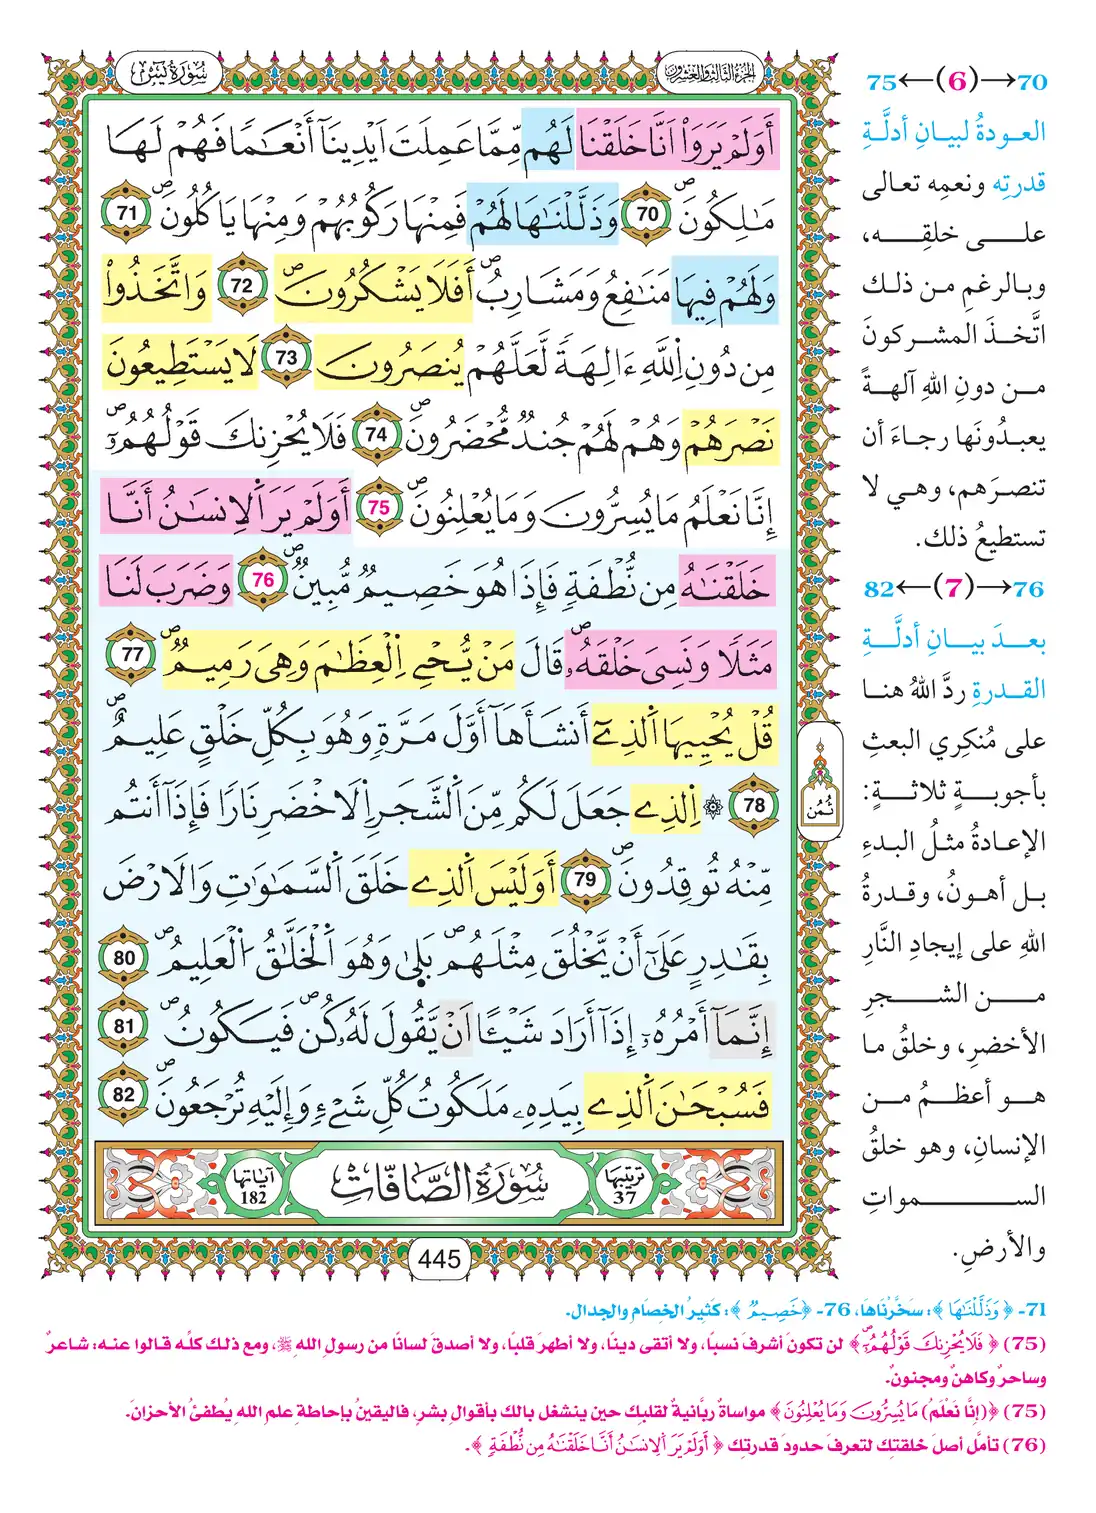 الجزء الثالث والعشرون
سورة يس
أَوَلَمْ يَرَوْاْ اَنَّا خَلَقْنَا لَهُم مِّمَّا عَمِلَتَ اَيْدِينَآ أَنْعَٰمٗا فَهُمْ لَهَا
مَٰلِكُونَۖ 70 وَذَلَّلْنَٰهَا لَهُمْ فَمِنْهَا رَكُوبُهُمْ وَمِنْهَا يَاكُلُونَۖ 71
وَلَهُمْ فِيهَا مَنَٰفِعُ وَمَشَارِبُۖ أَفَلَا يَشْكُرُونَۖ 72 وَاتَّخَذُواْ
مِن دُونِ اِ۬للَّهِ ءَالِهَةٗ لَّعَلَّهُمْ يُنصَرُونَ 73 لَا يَسْتَطِيعُونَ
نَصْرَهُمْ وَهُمْ لَهُمْ جُندٞ مُّحْضَرُونَۖ 74 فَلَا يُحْزِنكَ قَوْلُهُمُۥٓۖ
إِنَّا نَعْلَمُ مَا يُسِرُّونَ وَمَا يُعْلِنُونَۖ 75 أَوَلَمْ يَرَ اَ۬لِانسَٰنُ أَنَّا
خَلَقْنَٰهُ مِن نُّطْفَةٖ فَإِذَا هُوَ خَصِيمٞ مُّبِينٞۖ 76 وَضَرَبَ لَنَا
مَثَلٗا وَنَسِيَ خَلْقَهُۥۖ قَالَ مَنْ يُّحْيِ اِ۬لْعِظَٰمَ وَهِيَ رَمِيمٞۖ 77
قُلْ يُحْيِيهَا اَ۬لذِےٓ أَنشَأَهَآ أَوَّلَ مَرَّةٖ وَهُوَ بِكُلِّ خَلْقٍ عَلِيمٌۖ
78 ۞ اِ۬لذِے جَعَلَ لَكُم مِّنَ اَ۬لشَّجَرِ اِ۬لَاخْضَرِ نَارٗا فَإِذَآ أَنتُم
مِّنْهُ تُوقِدُونَۖ 79 أَوَلَيْسَ اَ۬لذِے خَلَقَ اَ۬لسَّمَٰوَٰتِ وَالَارْضَ
بِقَٰدِرٍ عَلَىٰٓ أَنْ يَّخْلُقَ مِثْلَهُمۖ بَلَىٰ وَهُوَ اَ۬لْخَلَّٰقُ اُ۬لْعَلِيمُۖ 80
إِنَّمَآ أَمْرُهُۥٓ إِذَآ أَرَادَ شَيْـًٔا اَنْ يَّقُولَ لَهُۥ كُنۖ فَيَكُونُۖ 81
فَسُبْحَٰنَ اَ۬لذِے بِيَدِهِۦ مَلَكُوتُ كُلِّ شَےْءٖ وَإِلَيْهِ تُرْجَعُونَۖ 82
ترتيبها 37
سُورَةُ الصَّافَّاتِ
آياتها 182
445
ثُمُن
70→(6)←75
العودةُ لبيانِ أدلَّةِ
قدرتِه ونعمِه تعالى
على خلقِه،
وبالرغمِ من ذلك
اتَّخذَ المشركونَ
من دونِ اللهِ آلهةً
يعبدُونَها رجاءَ أن
تنصرَهم، وهي لا
تستطيعُ ذلك.
76→(7)←82
بعدَ بيانِ أدلَّةِ
القدرةِ ردَّ اللهُ هنا
على مُنكِري البعثِ
بأجوبةٍ ثلاثةٍ:
الإعادةُ مثلُ البدءِ
بل أهونُ، وقدرةُ
اللهِ على إيجادِ النَّارِ
من الشجرِ
الأخضرِ، وخلقُ ما
هو أعظمُ من
الإنسانِ، وهو خلقُ
السمواتِ
والأرضِ.
71- ﴿وَذَلَّلْنَٰهَا﴾: سَخَّرْنَاهَا، 76- ﴿خَصِيمٞ﴾: كَثِيرُ الخِصَامِ والجِدَالِ.
(75) ﴿فَلَا يُحْزِنكَ قَوْلُهُمُۥٓۖ﴾ لن تكونَ أشرفَ نسبًا، ولا أتقى دينًا، ولا أطهرَ قلبًا، ولا أصدقَ لسانًا من رسولِ اللهِ ﷺ، ومع ذلك كلِّه قالوا عنه: شاعرٌ
وساحرٌ وكاهنٌ ومجنونٌ.
(75) ﴿(إِنَّا نَعْلَمُ) مَا يُسِرُّونَ وَمَا يُعْلِنُونَ﴾ مواساةٌ ربَّانيةٌ لقلبِك حين ينشغل بالك بأقوالِ بشرٍ، فاليقينُ بإحاطةِ علمِ اللهِ يُطفئُ الأحزانَ.
(76) تأمَّل أصلَ خلقتِك لتعرفَ حدودَ قدرتِك ﴿أَوَلَمْ يَرَ اَ۬لِانسَٰنُ أَنَّا خَلَقْنَٰهُ مِن نُّطْفَةٖ﴾.